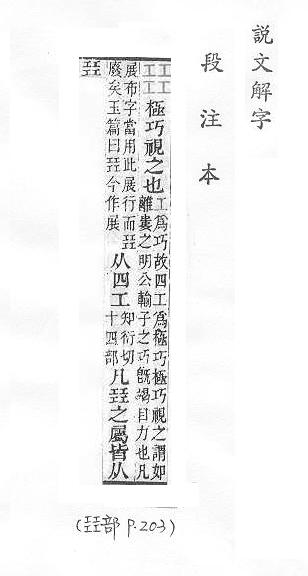 說文解字
段注本
㠭極巧視之也工爲巧故四工爲極巧極巧視之謂如離婁之明公輸子之巧旣竭目力也凡
展布字當用此展行而㠭廢矣玉篇曰㠭今作展从四工知衍切十四部凡㠭之屬皆从
㠭
(㠭部 P.203)